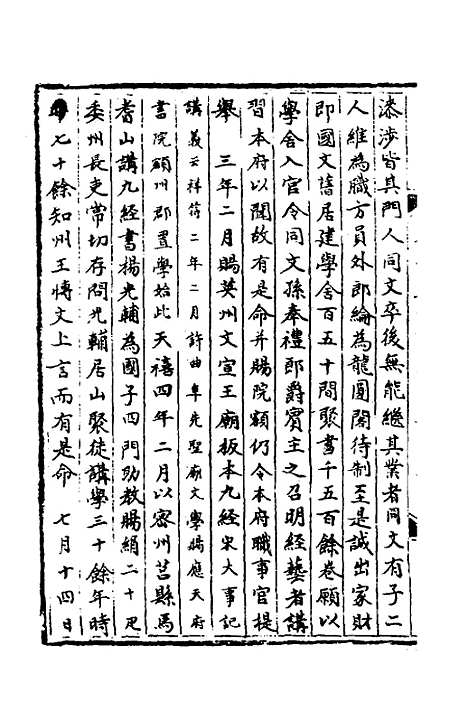 滌涉皆其門人同文卒後無能繼其業者同文有子二
人維為職方員外郎綸為龍圖閣待制至是誠出家財
即國文舊居建學舍百五十間聚書千五百餘卷願以
學舍入官令同文孫奉禮郎爵賓主之召明經藝者講
習本府以聞故有是命并賜院額仍令本府職事官提
舉　三年二月賜英州文宣王廟板本九經宋大事記
講義云祥符二年二月許曲阜先聖廟文學賜應天府
書院額州郡置學始此天禧四年二月以密州莒縣馬
耆山講九經書揚光輔為國子四門助教賜絹二十疋
委州長吏常切存問光輔居山聚徒講學三十餘年時
年七十餘知州王博文上言而有是命　七月十四日